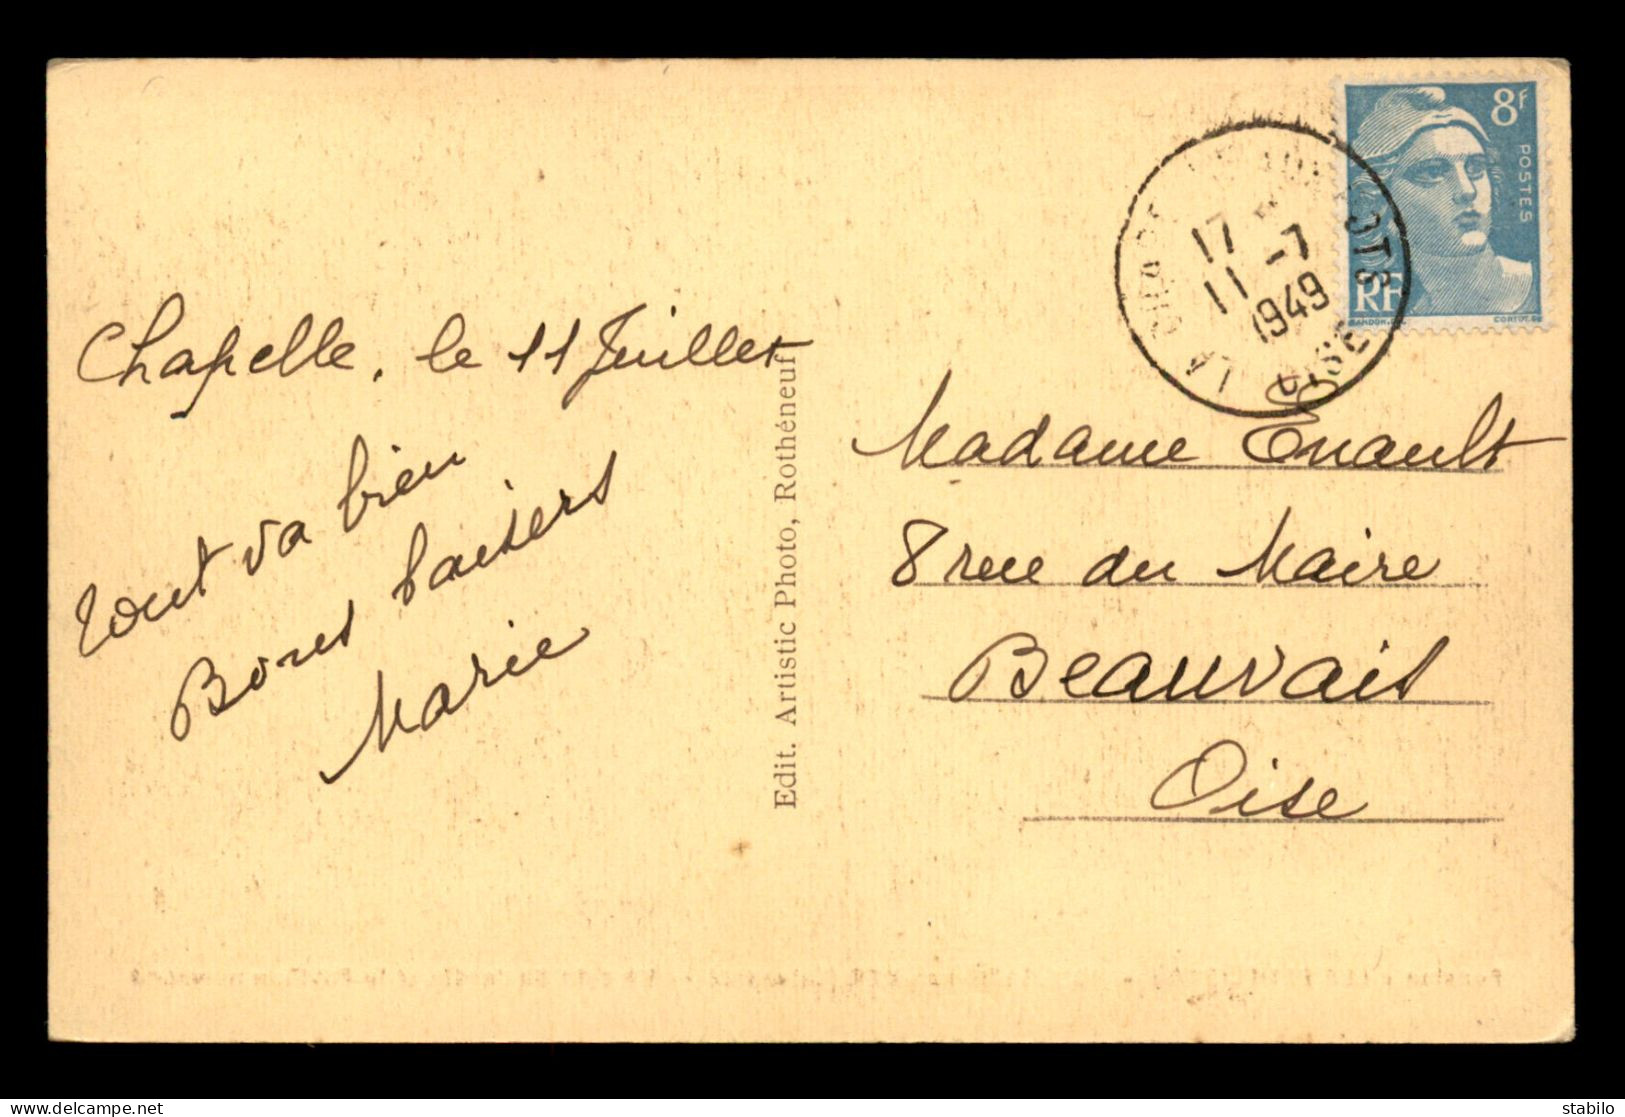 Chapelle, le 11 Juillet
Tout va bien
Bones baisers
Marie
Edit. Artistic Photo, Rothéneuf
8f
POSTES
RF
LA
OTS
OISE
17
11 -7
1949
Madame Enault
8 rue du Maire
Beauvais
Oise
stabilo delcampe.net